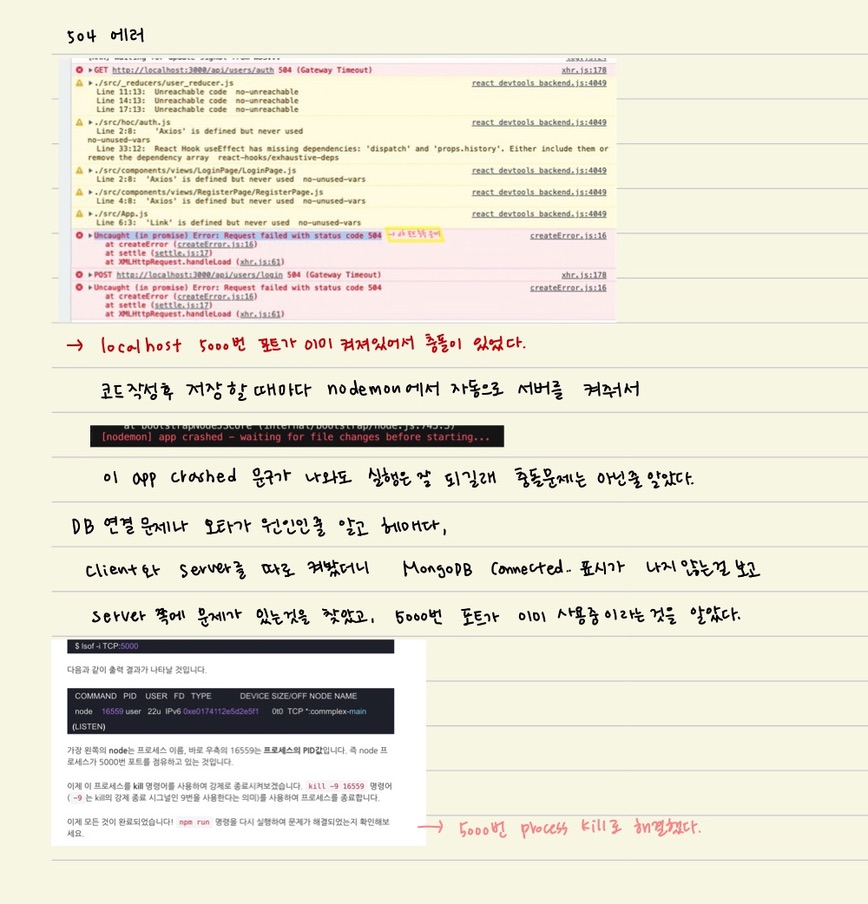 504 에러
GET http://localhost:3000/api/users/auth 504 (Gateway Timeout) xhr.js:178
./src/_reducers/user_reducer.js react devtools backend.js:4049
Line 11:13: Unreachable code no-unreachable
Line 14:13: Unreachable code no-unreachable
Line 17:13: Unreachable code no-unreachable
./src/hoc/auth.js react devtools backend.js:4049
Line 2:8: 'Axios' is defined but never used
no-unused-vars
Line 33:12: React Hook useEffect has missing dependencies: 'dispatch' and 'props.history'. Either include them or
remove the dependency array react-hooks/exhaustive-deps
./src/components/views/LoginPage/LoginPage.js react devtools backend.js:4049
Line 2:8: 'Axios' is defined but never used no-unused-vars
./src/components/views/RegisterPage/RegisterPage.js react devtools backend.js:4049
Line 4:8: 'Axios' is defined but never used no-unused-vars
./src/App.js react devtools backend.js:4049
Line 6:3: 'Link' is defined but never used no-unused-vars
Uncaught (in promise) Error: Request failed with status code 504 createError.js:16
at createError (createError.js:16)
at settle (settle.js:17)
at XMLHttpRequest.handleLoad (xhr.js:61)
POST http://localhost:3000/api/users/login 504 (Gateway Timeout) xhr.js:178
Uncaught (in promise) Error: Request failed with status code 504 createError.js:16
at createError (createError.js:16)
at settle (settle.js:17)
at XMLHttpRequest.handleLoad (xhr.js:61)
→ localhost 5000번 포트가 이미 켜져있어서 충돌이 있었다.
코드작성후 저장할 때마다 nodemon에서 자동으로 서버를 켜줘서
[nodemon] app crashed - waiting for file changes before starting...
이 app crashed 문구가 나와도 실행은 잘 되길래 충돌문제는 아닌줄 알았다.
DB 연결 문제나 오타가 원인인줄 알고 헤매다,
Client와 Server를 따로 켜봤더니 MongoDB Connected.. 표시가 나지 않는걸 보고
Server 쪽에 문제가 있는것을 찾았고, 5000번 포트가 이미 사용중이라는것을 알았다.
$ lsof -i TCP:5000
다음과 같이 출력 결과가 나타날 것입니다.
COMMAND PID USER FD TYPE DEVICE SIZE/OFF NODE NAME
node 16559 user 22u IPv6 0xe0174112e5d2e5f1 0t0 TCP *:commplex-main
(LISTEN)
가장 왼쪽의 node는 프로세스 이름, 바로 우측의 16559는 프로세스의 PID값입니다. 즉 node 프
로세스가 5000번 포트를 점유하고 있는 것입니다.
이제 이 프로세스를 kill 명령어를 사용하여 강제로 종료시켜보겠습니다. kill -9 16559 명령어
( -9 는 kill의 강제 종료 시그널인 9번을 사용한다는 의미)를 사용하여 프로세스를 종료합니다.
이제 모든 것이 완료되었습니다! npm run 명령을 다시 실행하여 문제가 해결되었는지 확인해보
세요.
→ 5000번 process kill로 해결했다.